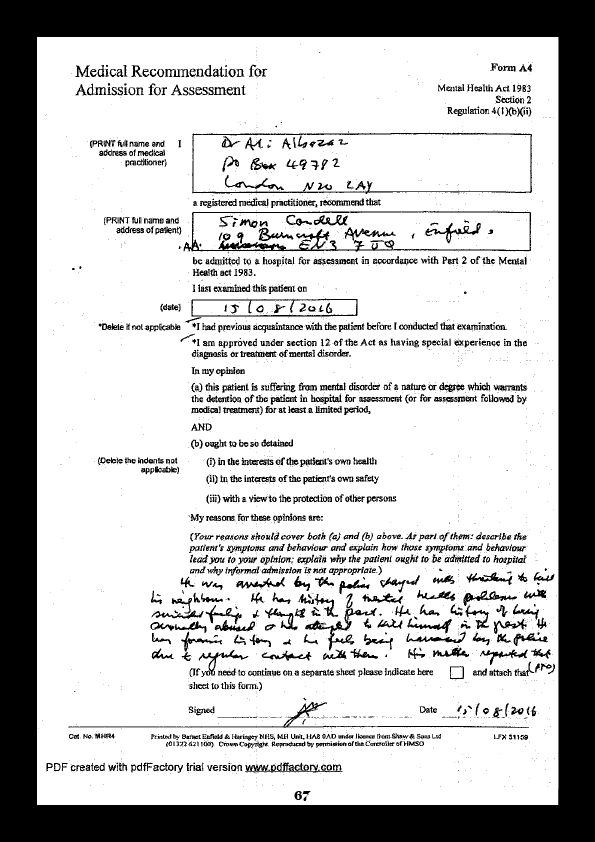 Medical Recommendation for
Admission for Assessment
Form A4
Mental Health Act 1983
Section 2
Regulation 4(1)(b)(ii)
(PRINT full name and
address of medical
practitioner)
I
Dr Ali Albazaz
PO Box 49782
London N20 2AY
a registered medical practitioner, recommend that
(PRINT full name and
address of patient)
Simon Cordell
109 Burncroft Avenue, Enfield,
EN3 7JQ
be admitted to a hospital for assessment in accordance with Part 2 of the Mental
Health act 1983.
I last examined this patient on
(date)
15/08/2016
*Delete if not applicable
*I had previous acquaintance with the patient before I conducted that examination.
*I am approved under section 12 of the Act as having special experience in the
diagnosis or treatment of mental disorder.
In my opinion
(a) this patient is suffering from mental disorder of a nature or degree which warrants
the detention of the patient in hospital for assessment (or for assessment followed by
medical treatment) for at least a limited period,
AND
(b) ought to be so detained
(Delete the indents not
applicable)
(i) in the interests of the patient's own health
(ii) in the interests of the patient's own safety
(iii) with a view to the protection of other persons
My reasons for these opinions are:
(Your reasons should cover both (a) and (b) above. As part of them: describe the
patient's symptoms and behaviour and explain how those symptoms and behaviour
lead you to your opinion; explain why the patient ought to be admitted to hospital
and why informal admission is not appropriate.)
He was arrested by the police charged with threatening to kill
his neighbour. He has history of mental health problems with
suicidal feelings & thought in the past. He has history of being
sexually abused & has attempted to kill himself in the past. He
has forensic history & he feels being harassed by the police
due to regular contact with them. His mother reported that
(If you need to continue on a separate sheet please indicate here and attach that (PTO)
sheet to this form.)
Signed
Date 15/08/2016
Cat. No. MHR4
Printed by Barnet Enfield & Haringey NHS, MH Unit, HA8 0AD under licence from Shaw & Sons Ltd
(01322 621100). Crown Copyright. Reproduced by permission of the Controller of HMSO
LFX 31159
PDF created with pdfFactory trial version www.pdffactory.com
67